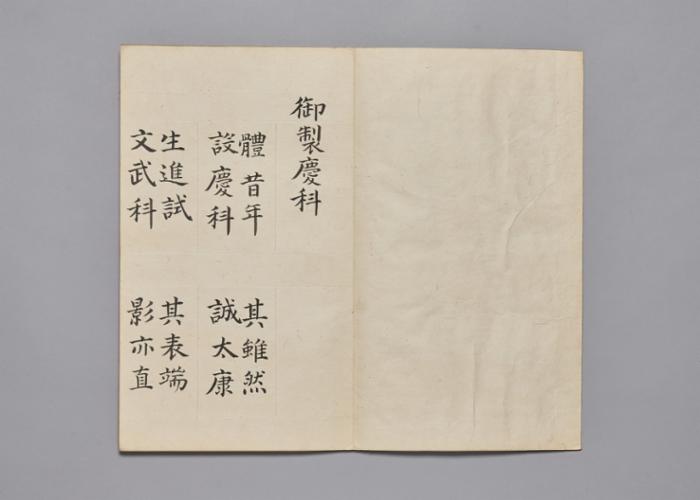 御製慶科
體昔年
設慶科
其雖然
誠太康
生進試
文武科
其表端
影亦直